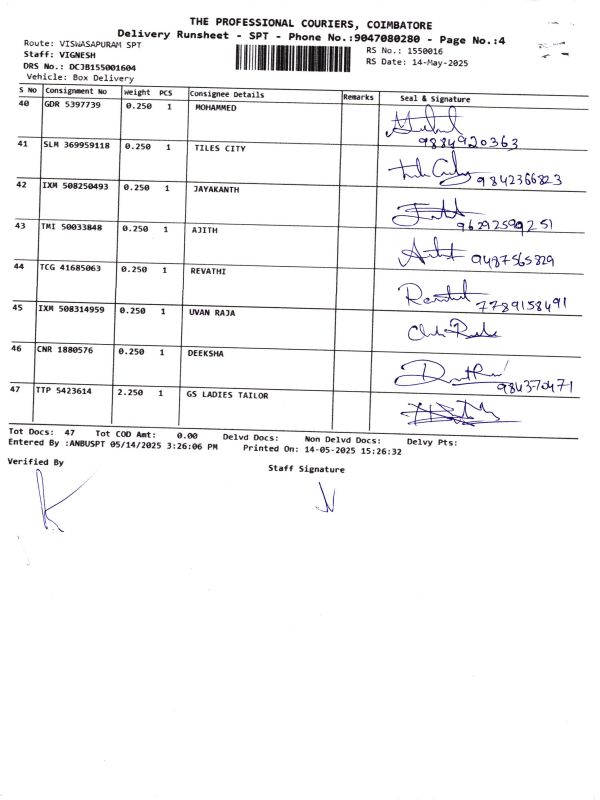 THE PROFESSIONAL COURIERS, COIMBATORE
Delivery Runsheet - SPT - Phone No.:9047080280 - Page No.:4
Route: VISWASAPURAM SPT
RS No.: 1550016
Staff: VIGNESH
RS Date: 14-May-2025
DRS No.: DCJB155001604
Vehicle: Box Delivery
S No Consignment No Weight PCS Consignee Details Remarks Seal & Signature
40 GDR 5397739 0.250 1 MOHAMMED
9884920363
41 SLM 369959118 0.250 1 TILES CITY
9842366823
42 IXM 508250493 0.250 1 JAYAKANTH
43 TMI 50033848 0.250 1 AJITH
9487565829
44 TCG 41685063 0.250 1 REVATHI
7789158491
45 IXM 508314959 0.250 1 UVAN RAJA
46 CNR 1880576 0.250 1 DEEKSHA
984370471
47 TTP 5423614 2.250 1 GS LADIES TAILOR
Tot Docs: 47 Tot COD Amt: 0.00 Delvd Docs: Non Delvd Docs: Delvy Pts:
Entered By :ANBUSPT 05/14/2025 3:26:06 PM Printed On: 14-05-2025 15:26:32
Verified By
Staff Signature